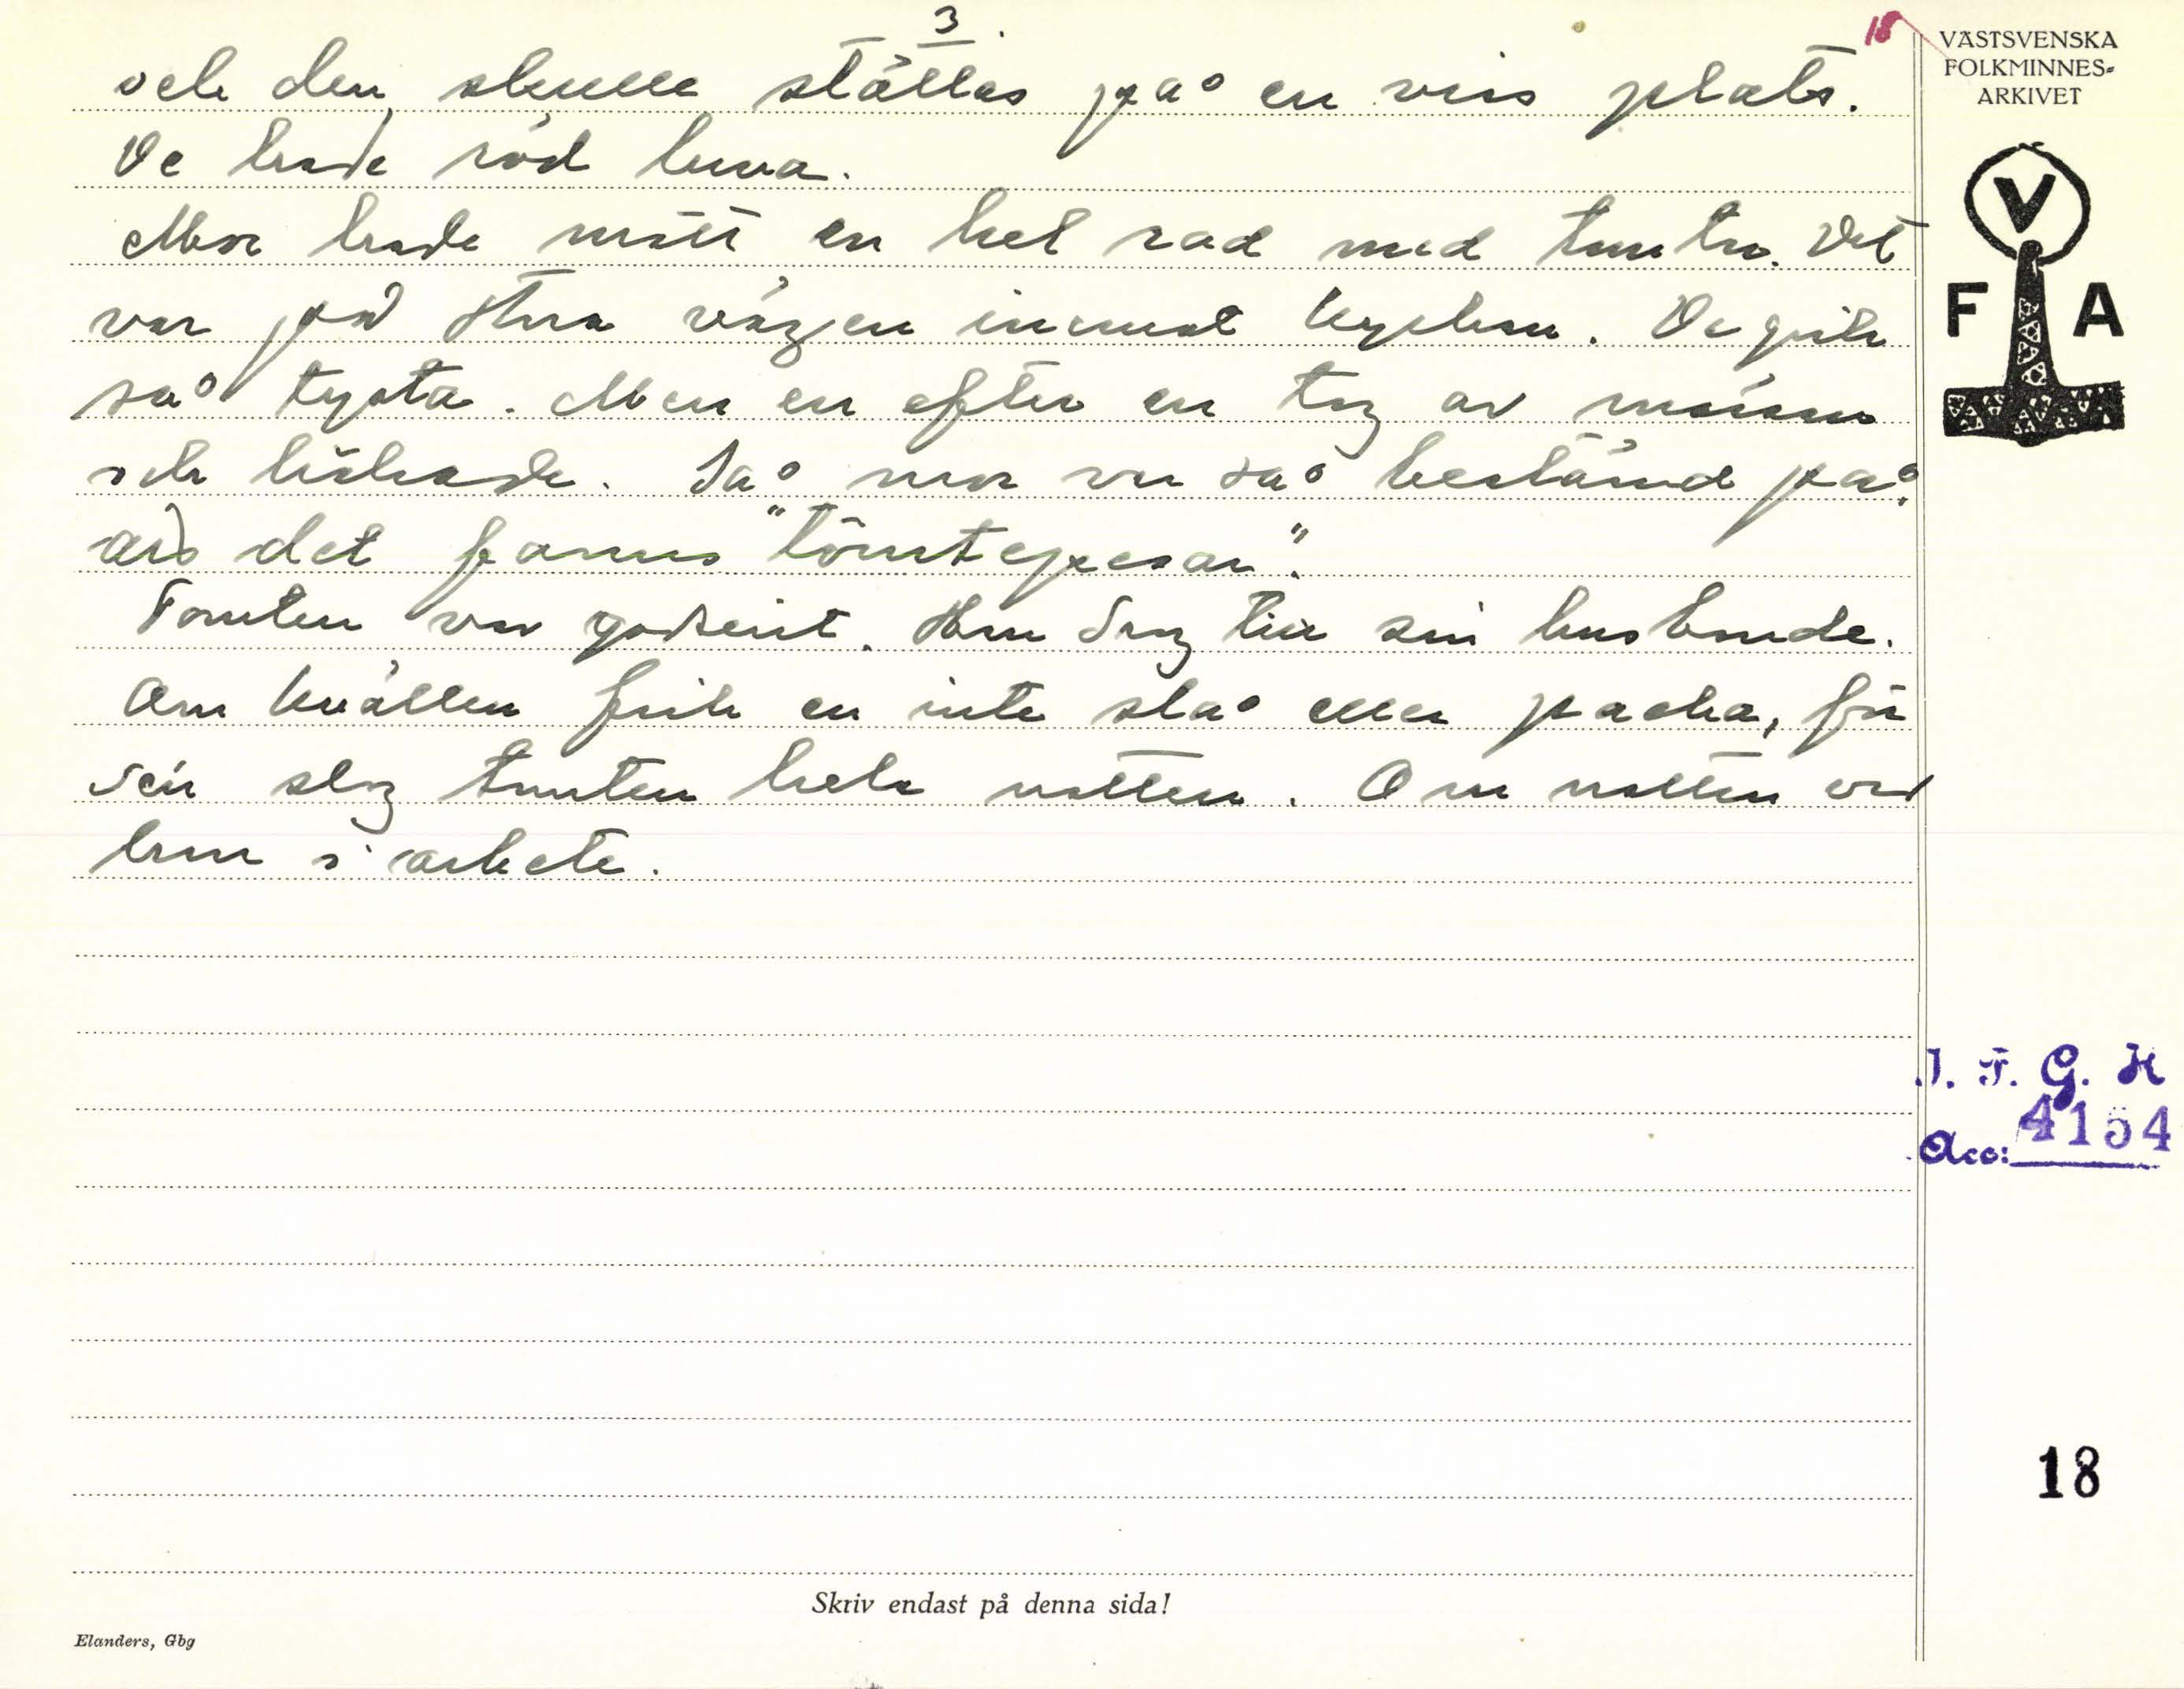 3.
18
och den skulle ställas på en viss plats.
De hade röd luva.
Mor hade mött en hel rad med tomtar. Det
var på stora vägen inemot kyrkan. De gick
så tysta. Men en efter en tog av mössan
och hälsade. Så mor var så bestämd på
att det fanns "tömtepesar".
Tomten var godsint. Han drog till sin husbonde.
Om kvällen fick en inte slå eller packa, för
sen slog tomten hela natten. Om natten var
han i arbete.
VÄSTSVENSKA
FOLKMINNES-
ARKIVET
V
F A
I. F. G. H
Acc: 4154
18
Skriv endast på denna sida!
Elanders, Gbg